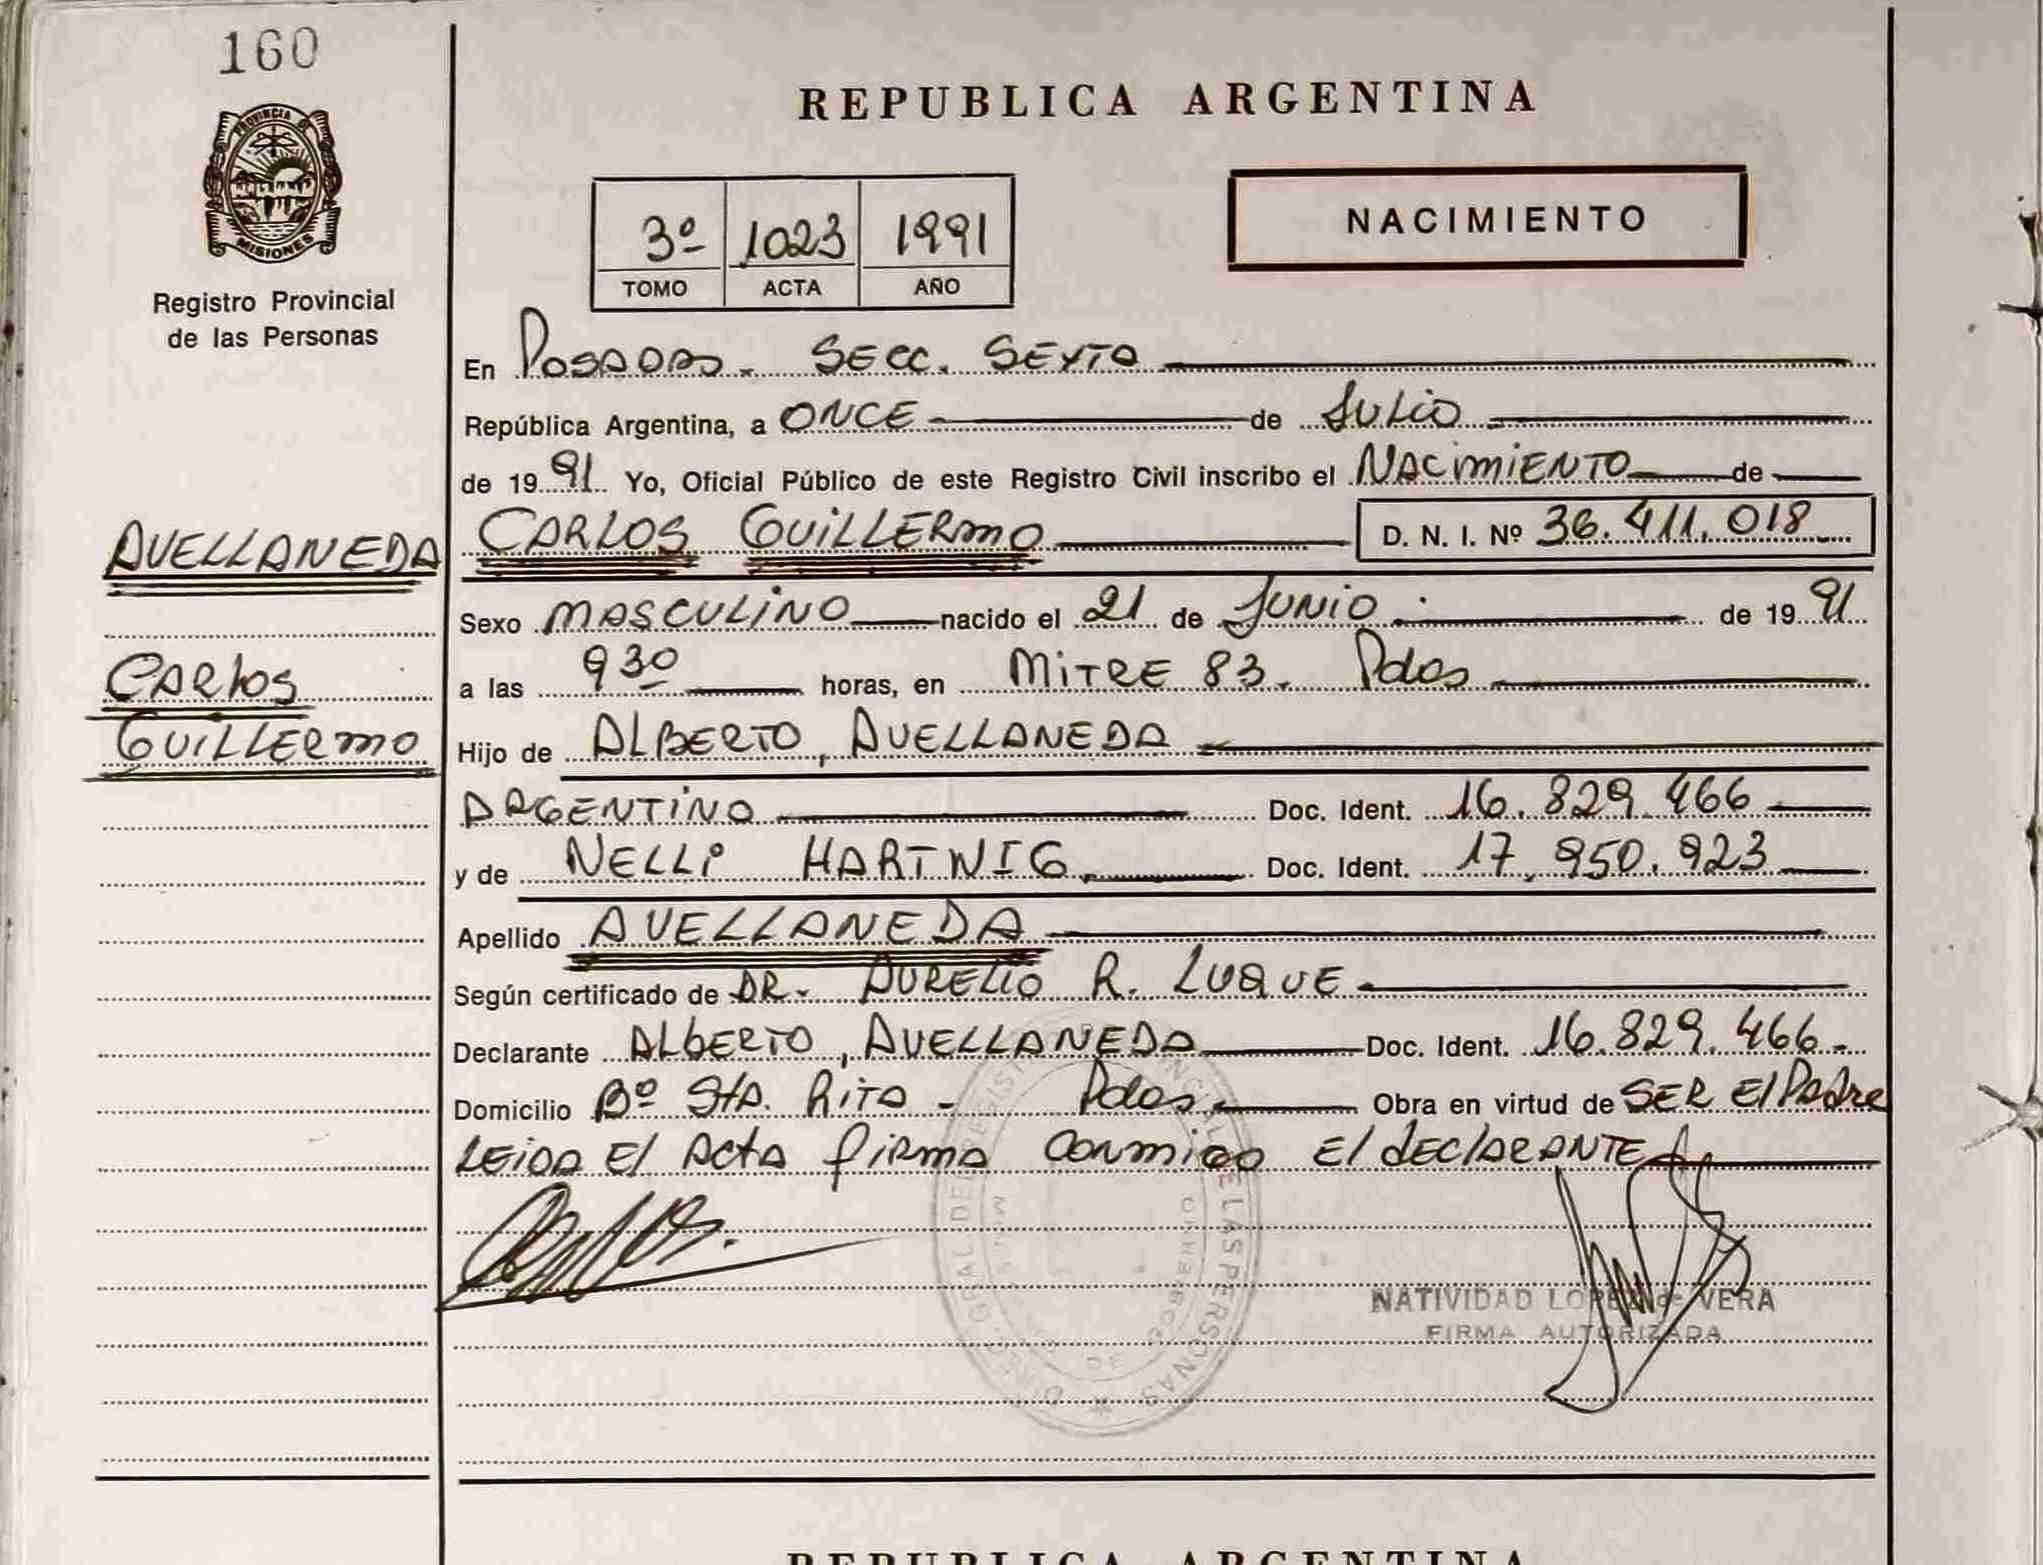 160
PROVINCIA DE
MISIONES
Registro Provincial
de las Personas
AVELLANEDA
Carlos
Guillermo
REPUBLICA ARGENTINA
3º 1023 1991
TOMO ACTA AÑO
NACIMIENTO
En Posadas - Secc. Sexta
República Argentina, a ONCE de Julio
de 1991 Yo, Oficial Público de este Registro Civil inscribo el NACIMIENTO de
CARLOS GUILLERMO D. N. I. Nº 36.411.018
Sexo MASCULINO nacido el 21 de Junio de 1991
a las 930 horas, en MITRE 83. Pdas
Hijo de ALBERTO, AVELLANEDA
ARGENTINO Doc. Ident. 16.829.466
y de NELLI HARTWIG Doc. Ident. 17.950.923
Apellido AVELLANEDA
Según certificado de DR. AURELIO R. LUQUE
Declarante ALBERTO, AVELLANEDA Doc. Ident. 16.829.466
Domicilio Bº Sta. Rita - Pdas Obra en virtud de SER El Padre
LEIDA El Acta firma conmigo El declarante
NATIVIDAD LOPEZ de VERA
FIRMA AUTORIZADA
REPUBLICA ARGENTINA